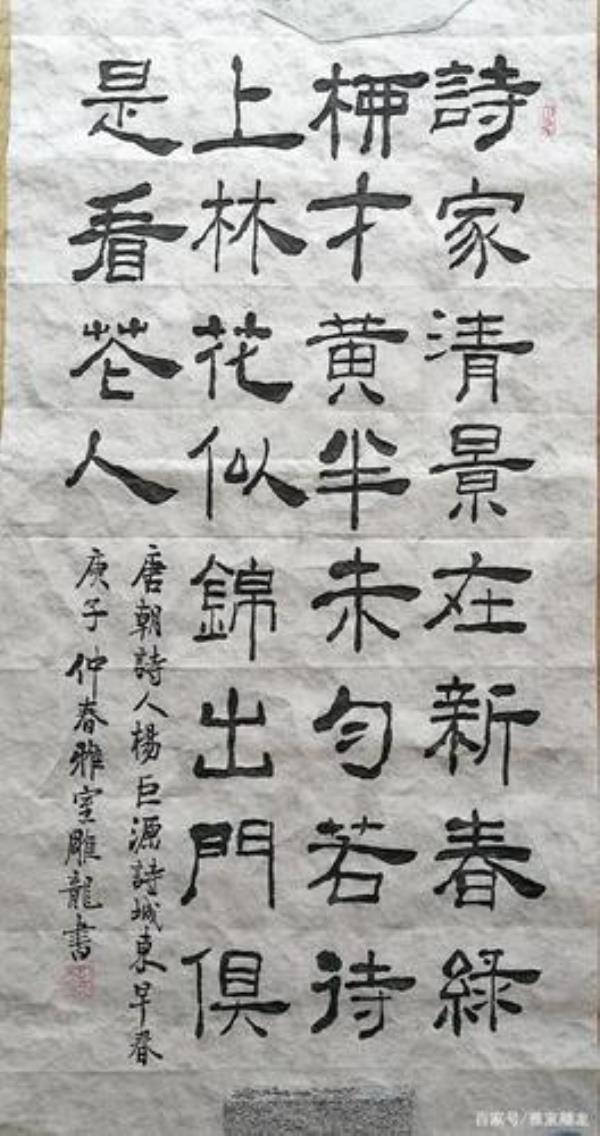 詩家清景在新春緑
柳才黄半未匀若待
上林花似錦出門俱
是看苍人
唐朝詩人楊巨源詩城東早春
庚子仲春雅室雕龍書
百家号/雅室雕龙